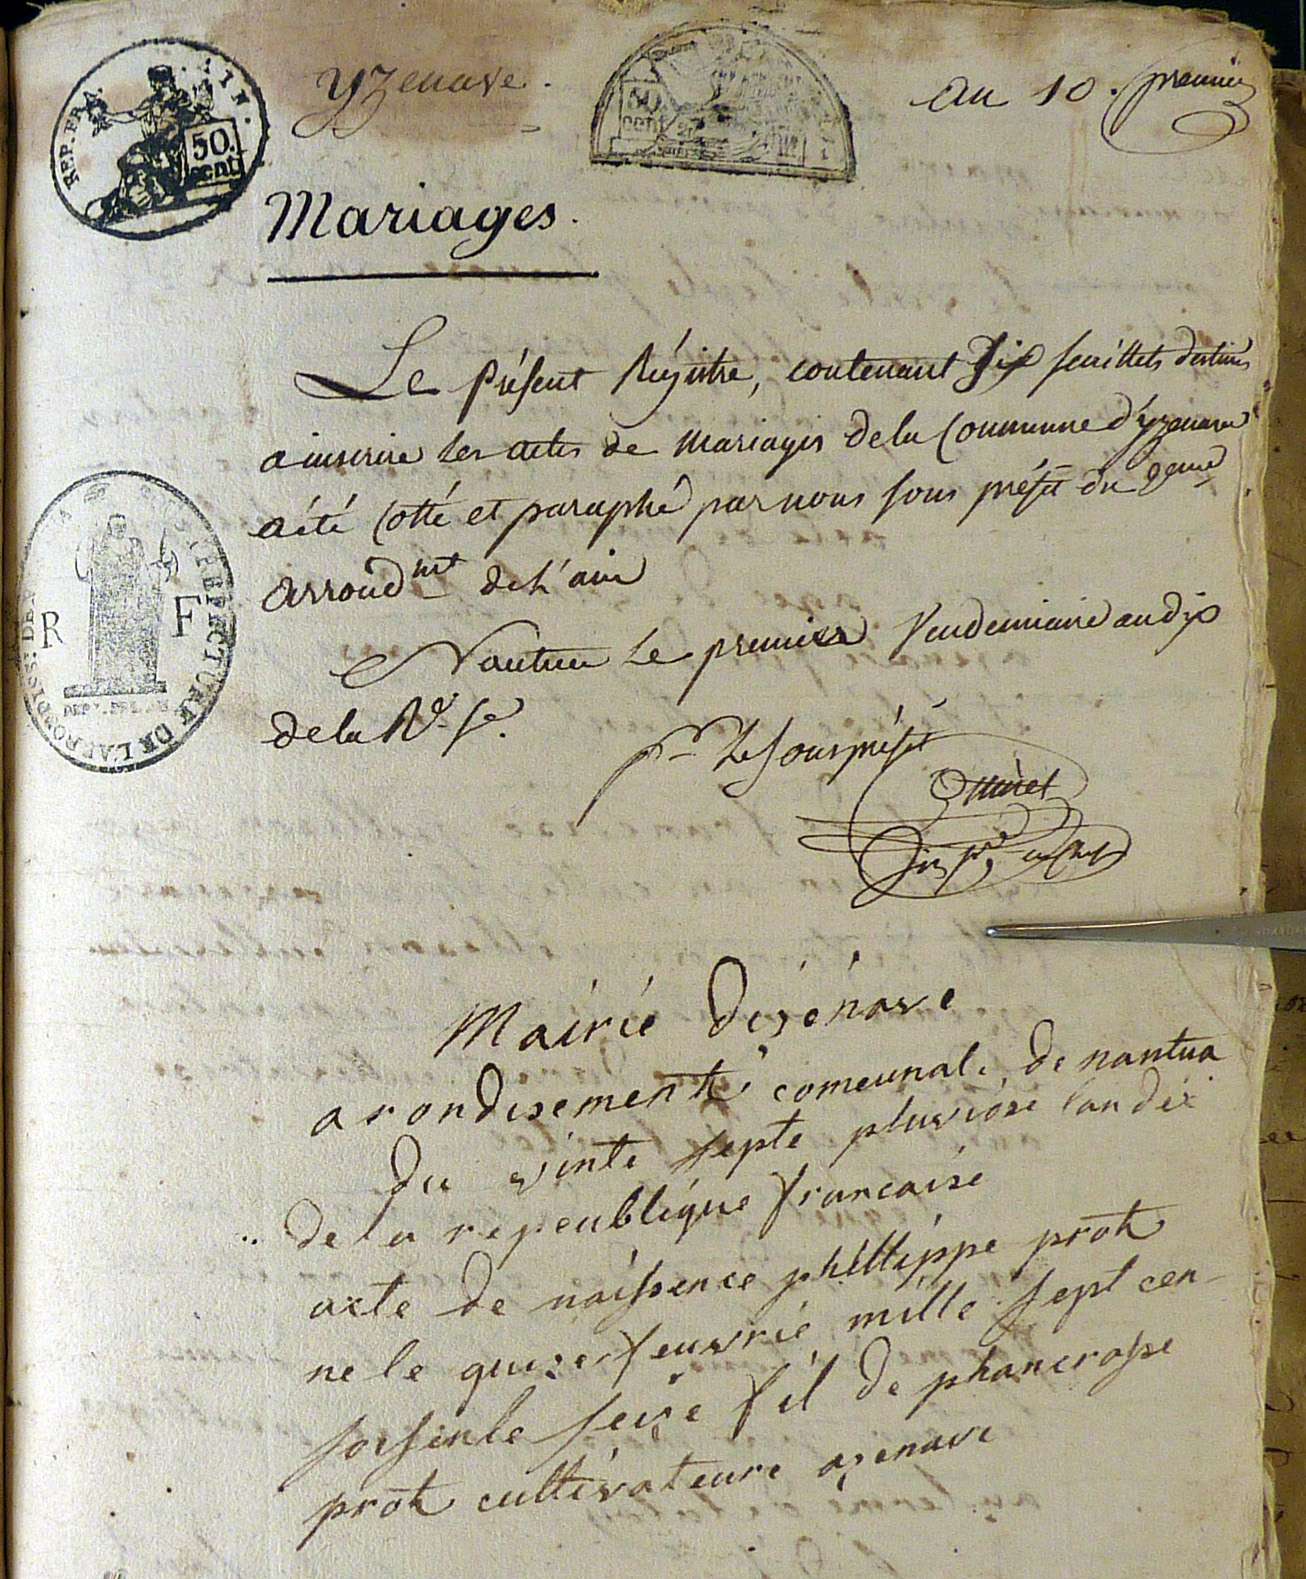 REP. FRA. 11 N.
50. cent
yzenave.
50. cent
an 10. premier
Mariages.
Le présent Régistre, contenant dix feuillets destinés
a inscrire les actes de mariages de la Commune d'yzenave
a été Cotté et paraphé par nous sous préfet du
arrond.mt de L'ain
Nantua Le premier Vendemiaire an dix
de la R. f.
R F
PREFECTURE DE L'ARRONDISS. DE
pr Le sous préfet
Mairie disénave
arondisement comeunal. de nantua
du vinte septe pluviose lan dix
de la repeublique francaise
acte de naissence phillippe prost
ne le quize feuvrié mille sept cen
soisente seize fil de phancrasse
prost cultivateure asenave